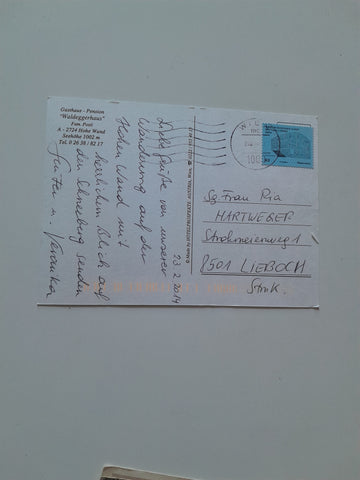 Gasthaus - Pension
"Waldeggerhaus"
Fam. Postl
A - 2724 Hohe Wand
Seehöhe 1002 m
Tel. 0 26 38 / 82 17
23.2.2014
Liebe Grüße von unserer
Wanderung auf der
Hohen Wand mit
herrlichem Blick auf
den Schneeberg senden
Günter u. Veronika
Sg. Frau Pia
HARTWEGER
8501 LIEBOCH
Stmk.